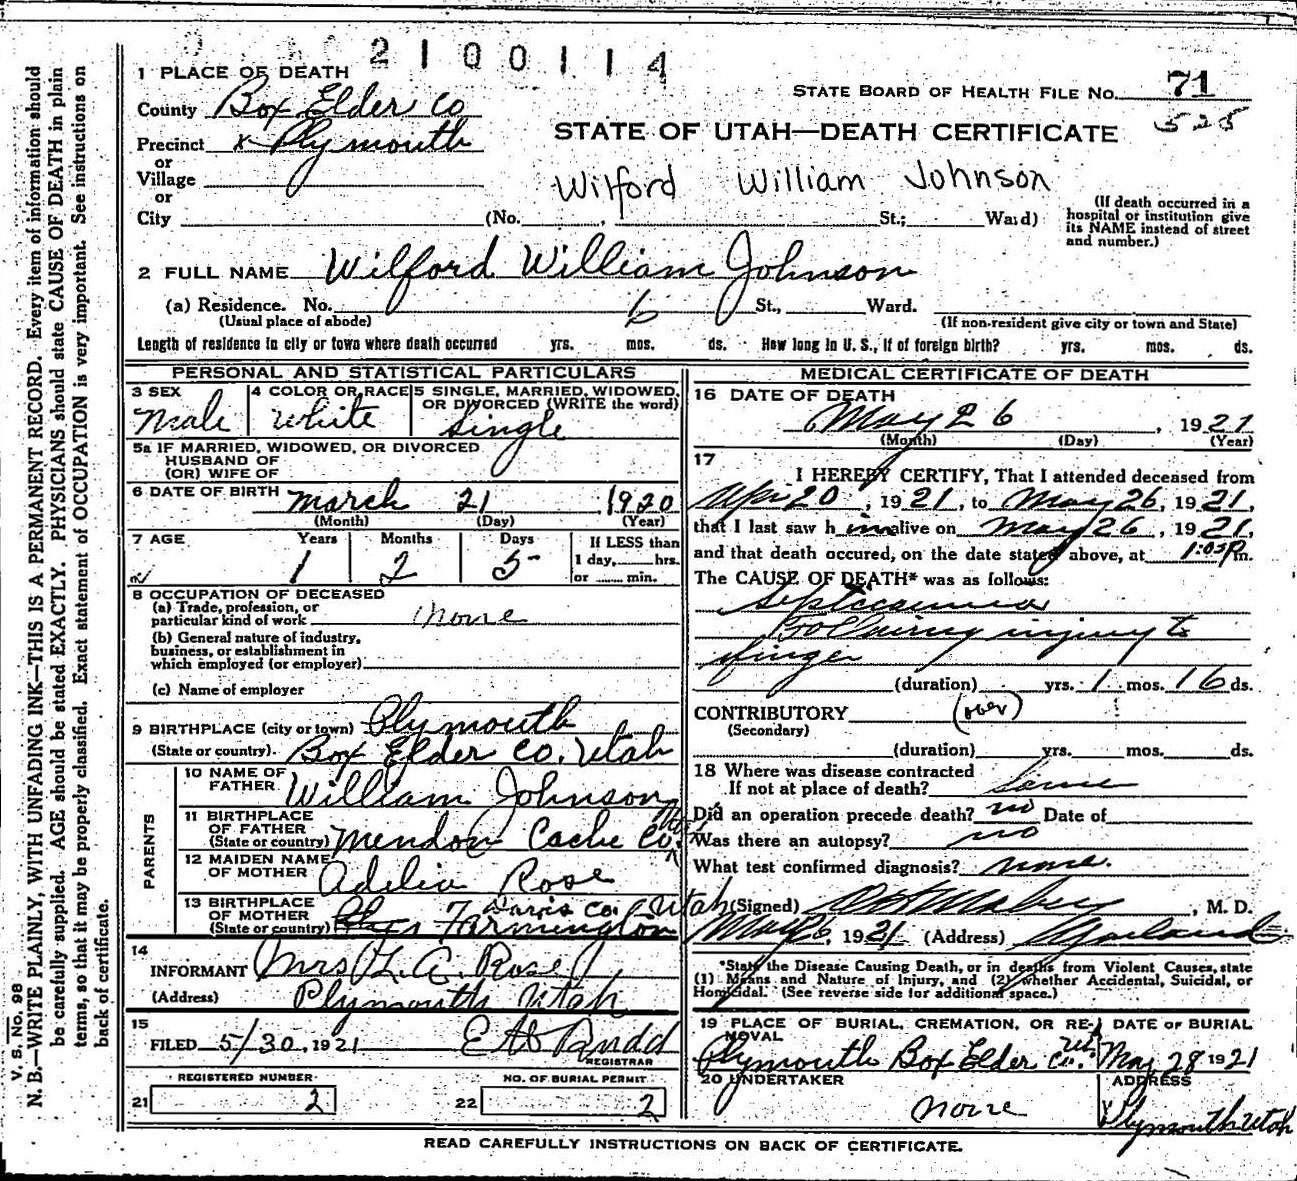 2100114
1 PLACE OF DEATH
County Box Elder Co
STATE BOARD OF HEALTH FILE No. 71
525
Precinct x Plymouth
STATE OF UTAH—DEATH CERTIFICATE
or
Village
or
Wilford William Johnson
City (No. , St.; Ward)
(If death occurred in a
hospital or institution give
its NAME instead of street
and number.)
2 FULL NAME Wilford William Johnson
(a) Residence. No. St., Ward.
(Usual place of abode)
(If non-resident give city or town and State)
Length of residence in city or town where death occurred yrs. mos. ds. How long in U. S., if of foreign birth? yrs. mos. ds.
PERSONAL AND STATISTICAL PARTICULARS
3 SEX
Male
4 COLOR OR RACE
White
5 SINGLE, MARRIED, WIDOWED,
OR DIVORCED (WRITE the word)
Single
5a IF MARRIED, WIDOWED, OR DIVORCED
HUSBAND OF
(OR) WIFE OF
6 DATE OF BIRTH March 21 1920
(Month) (Day) (Year)
7 AGE Years Months Days If LESS than
1 day, hrs.
or min.
1 2 5
8 OCCUPATION OF DECEASED
(a) Trade, profession, or
particular kind of work none
(b) General nature of industry,
business, or establishment in
which employed (or employer)
(c) Name of employer
9 BIRTHPLACE (city or town) Plymouth
(State or country) Box Elder Co. Utah
PARENTS
10 NAME OF
FATHER William Johnson
11 BIRTHPLACE
OF FATHER
(State or country) Mendon Cache Co.
12 MAIDEN NAME
OF MOTHER Adelia Rose
13 BIRTHPLACE
OF MOTHER
(State or country) Farmington Davis Co. Utah
14
INFORMANT Mrs L. A. Rose
(Address) Plymouth Utah
15
FILED 5/30, 1921
REGISTRAR
REGISTERED NUMBER
21 2
NO. OF BURIAL PERMIT
22 2
MEDICAL CERTIFICATE OF DEATH
16 DATE OF DEATH
May 26, 1921
(Month) (Day) (Year)
17
I HEREBY CERTIFY, That I attended deceased from
Apr 20, 1921, to May 26, 1921,
that I last saw h im alive on May 26, 1921,
and that death occured, on the date stated above, at 1:05 P m.
The CAUSE OF DEATH* was as follows:
Septicaemia
Following injury to
finger
(duration) yrs. 1 mos. 16 ds.
CONTRIBUTORY (over)
(Secondary)
(duration) yrs. mos. ds.
18 Where was disease contracted
If not at place of death? Same
Did an operation precede death? no Date of
Was there an autopsy? no
What test confirmed diagnosis? none.
(Signed) , M. D.
May 26, 1921 (Address) Garland
*State the Disease Causing Death, or in deaths from Violent Causes, state
(1) Means and Nature of Injury, and (2) whether Accidental, Suicidal, or
Homicidal. (See reverse side for additional space.)
19 PLACE OF BURIAL, CREMATION, OR RE-
MOVAL
Plymouth Box Elder Co. Ut
DATE OF BURIAL
May 28 1921
20 UNDERTAKER
none
ADDRESS
Plymouth Utah
READ CAREFULLY INSTRUCTIONS ON BACK OF CERTIFICATE.
V. S. No. 98
N. B.—WRITE PLAINLY, WITH UNFADING INK—THIS IS A PERMANENT RECORD. Every item of information should
be carefully supplied. AGE should be stated EXACTLY. PHYSICIANS should state CAUSE OF DEATH in plain
terms, so that it may be properly classified. Exact statement of OCCUPATION is very important. See instructions on
back of certificate.